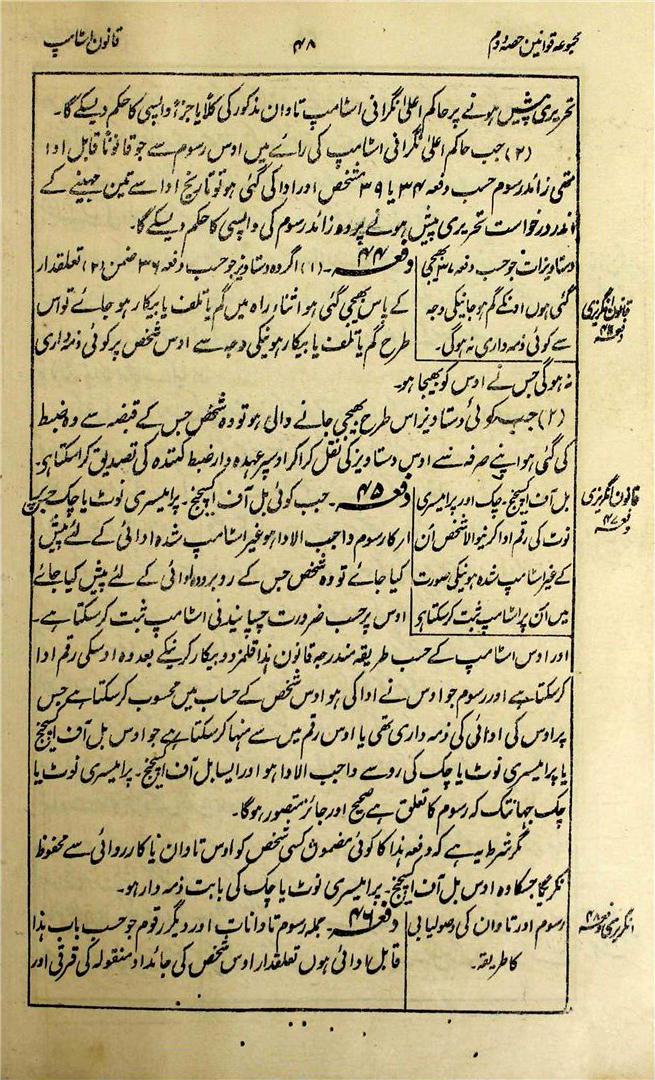 مجموعہ قوانین حصہ دوم
۴۸
قانون اسٹامپ
تحریری پیش ہونے پر حاکم اعلیٰ نگرانی اسٹامپ تاوان مذکور کی کلاً یا جزءاً واپسی کا حکم دیسکے گا۔
(۲) جب حاکم اعلیٰ نگرانی اسٹامپ کی رائے میں اوس رسوم سے جو قانوناً قابل ادا
تھی زائد رسوم حسب دفعہ ۳۴ یا ۳۹ مشخص اور ادا کی گئی ہو تو تاریخ ادا سے تین مہینے کے
اندر درخواست تحریری پیش ہونے پر وہ زائد رسوم کی واپسی کا حکم دیسکے گا۔
دستاویزات جو حسب دفعہ ۳۷ بھیجی
گئی ہوں اونکے گم ہو جانیکی وجہ
سے کوئی ذمہ داری نہ ہوگی۔
قانون انگریزی
دفعہ ۴۶
دفعہ ۴۴۔ (۱) اگر وہ دستاویز جو حسب دفعہ ۳۶ ضمن (۲) تعلقدار
کے پاس بھیجی گئی ہو اثناء راہ میں گم یا تلف یا بیکار ہو جائے تو اس
طرح گم یا تلف یا بیکار ہونیکی وجہ سے اوس شخص پر کوئی ذمہ داری
نہ ہوگی جس نے اوس کو بھیجا ہو۔
(۲) جب کوئی دستاویز اس طرح بھیجی جانے والی ہو تو وہ شخص جس کے قبضہ سے وہ ضبط
کی گئی ہو اپنے صرفہ سے اوس دستاویز کی نقل کرا کر اوسپر عہدہ دار ضبط کنندہ کی تصدیق کراسکتا ہی۔
بل آف ایکسچنج۔ چک اور پرامیسری
نوٹ کی رقم ادا کرنیوالا شخص اُن
کے غیر اسٹامپ شدہ ہونیکی صورت
میں اُن پر اسٹامپ ثبت کر سکتا ہی
قانون انگریزی
دفعہ ۴۷
دفعہ ۴۵۔ جب کوئی بل آف ایکسچنج۔ پرامیسری نوٹ یا چک جس پر
ار کا رسوم واجب الادا ہو غیر اسٹامپ شدہ ادائی کے لئے پیش
کیا جائے تو وہ شخص جس کے روبرو وہ ادائی کے لئے پیش کیا جائے
اوس پر حسب ضرورت چسپانیدنی اسٹامپ ثبت کر سکتا ہے۔
اور اوس اسٹامپ کے حسب طریقہ مندرجہ قانون ہذا قلمزد و بیکار کرنیکے بعد وہ اوسکی رقم ادا
کر سکتا ہے اور رسوم جو اوس نے ادا کی ہو اوس شخص کے حساب میں محسوب کر سکتا ہے جس
پر اوس کی ادائی کی ذمہ داری تھی یا اوس رقم میں سے منہا کر سکتا ہے جو اوس بل آف ایکسچنج
یا پرامیسری نوٹ یا چک کی رو سے واجب الادا ہو اور ایسا بل آف ایکسچنج۔ پرامیسری نوٹ یا
چک جہانتک کہ رسوم کا تعلق ہے صحیح اور جائز متصور ہوگا۔
مگر شرط یہ ہے کہ دفعہ ہذا کا کوئی مضمون کسی شخص کو اوس تاوان یا کارروائی سے محفوظ
نکریگا جسکا وہ اوس بل آف ایکسچنج۔ پرامیسری نوٹ یا چک کی بابت ذمہ دار ہو۔
رسوم اور تاوان کی وصولیابی
کا طریقہ۔
انگریزی دفعہ ۴۸
دفعہ ۴۶۔ جملہ رسوم تاوانات اور دیگر رقوم جو حسب باب ہذا
قابل ادائی ہوں تعلقدار اوس شخص کی جائداد منقولہ کی قرقی اور